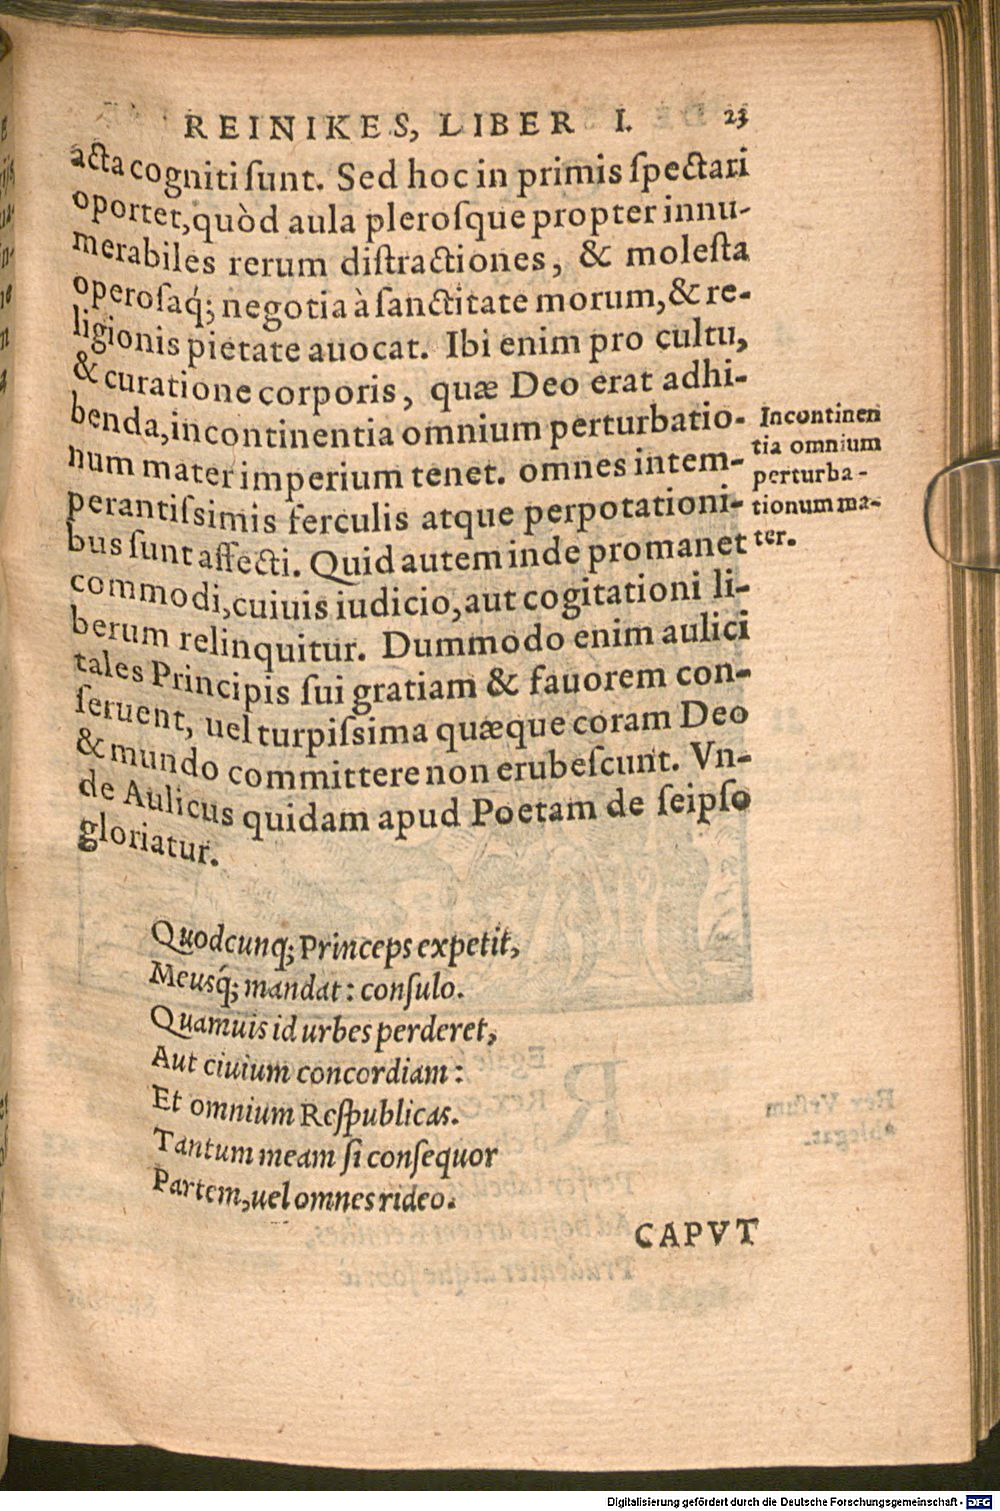 REINIKES, LIBER I. 23
acta cogniti sunt. Sed hoc in primis ſpectari
oportet, quòd aula pleroſque propter innu-
merabiles rerum diſtractiones, & moleſta
operoſaq́; negotia à ſanctitate morum, & re-
ligionis pietate auocat. Ibi enim pro cultu,
& curatione corporis, quæ Deo erat adhi-
benda, incontinentia omnium perturbatio-
num mater imperium tenet. omnes intem-
perantiſsimis ferculis atque perpotationi-
bus ſunt affecti. Quid autem inde promanet
commodi, cuiuis iudicio, aut cogitationi li-
berum relinquitur. Dummodo enim aulici
tales Principis ſui gratiam & fauorem con-
ſeruent, uel turpiſsima quæque coram Deo
& mundo committere non erubeſcunt. Vn-
de Aulicus quidam apud Poetam de ſeipſo
gloriatur.
Incontinen
tia omnium
perturba-
tionum ma-
ter.
Quodcunq; Princeps expetit,
Meusq́; mandat: conſulo.
Quamuis id urbes perderet,
Aut ciuium concordiam:
Et omnium Reſpublicas.
Tantum meam ſi conſequor
Partem, uel omnes rideo.
CAPVT
Digitalisierung gefördert durch die Deutsche Forschungsgemeinschaft - DFG